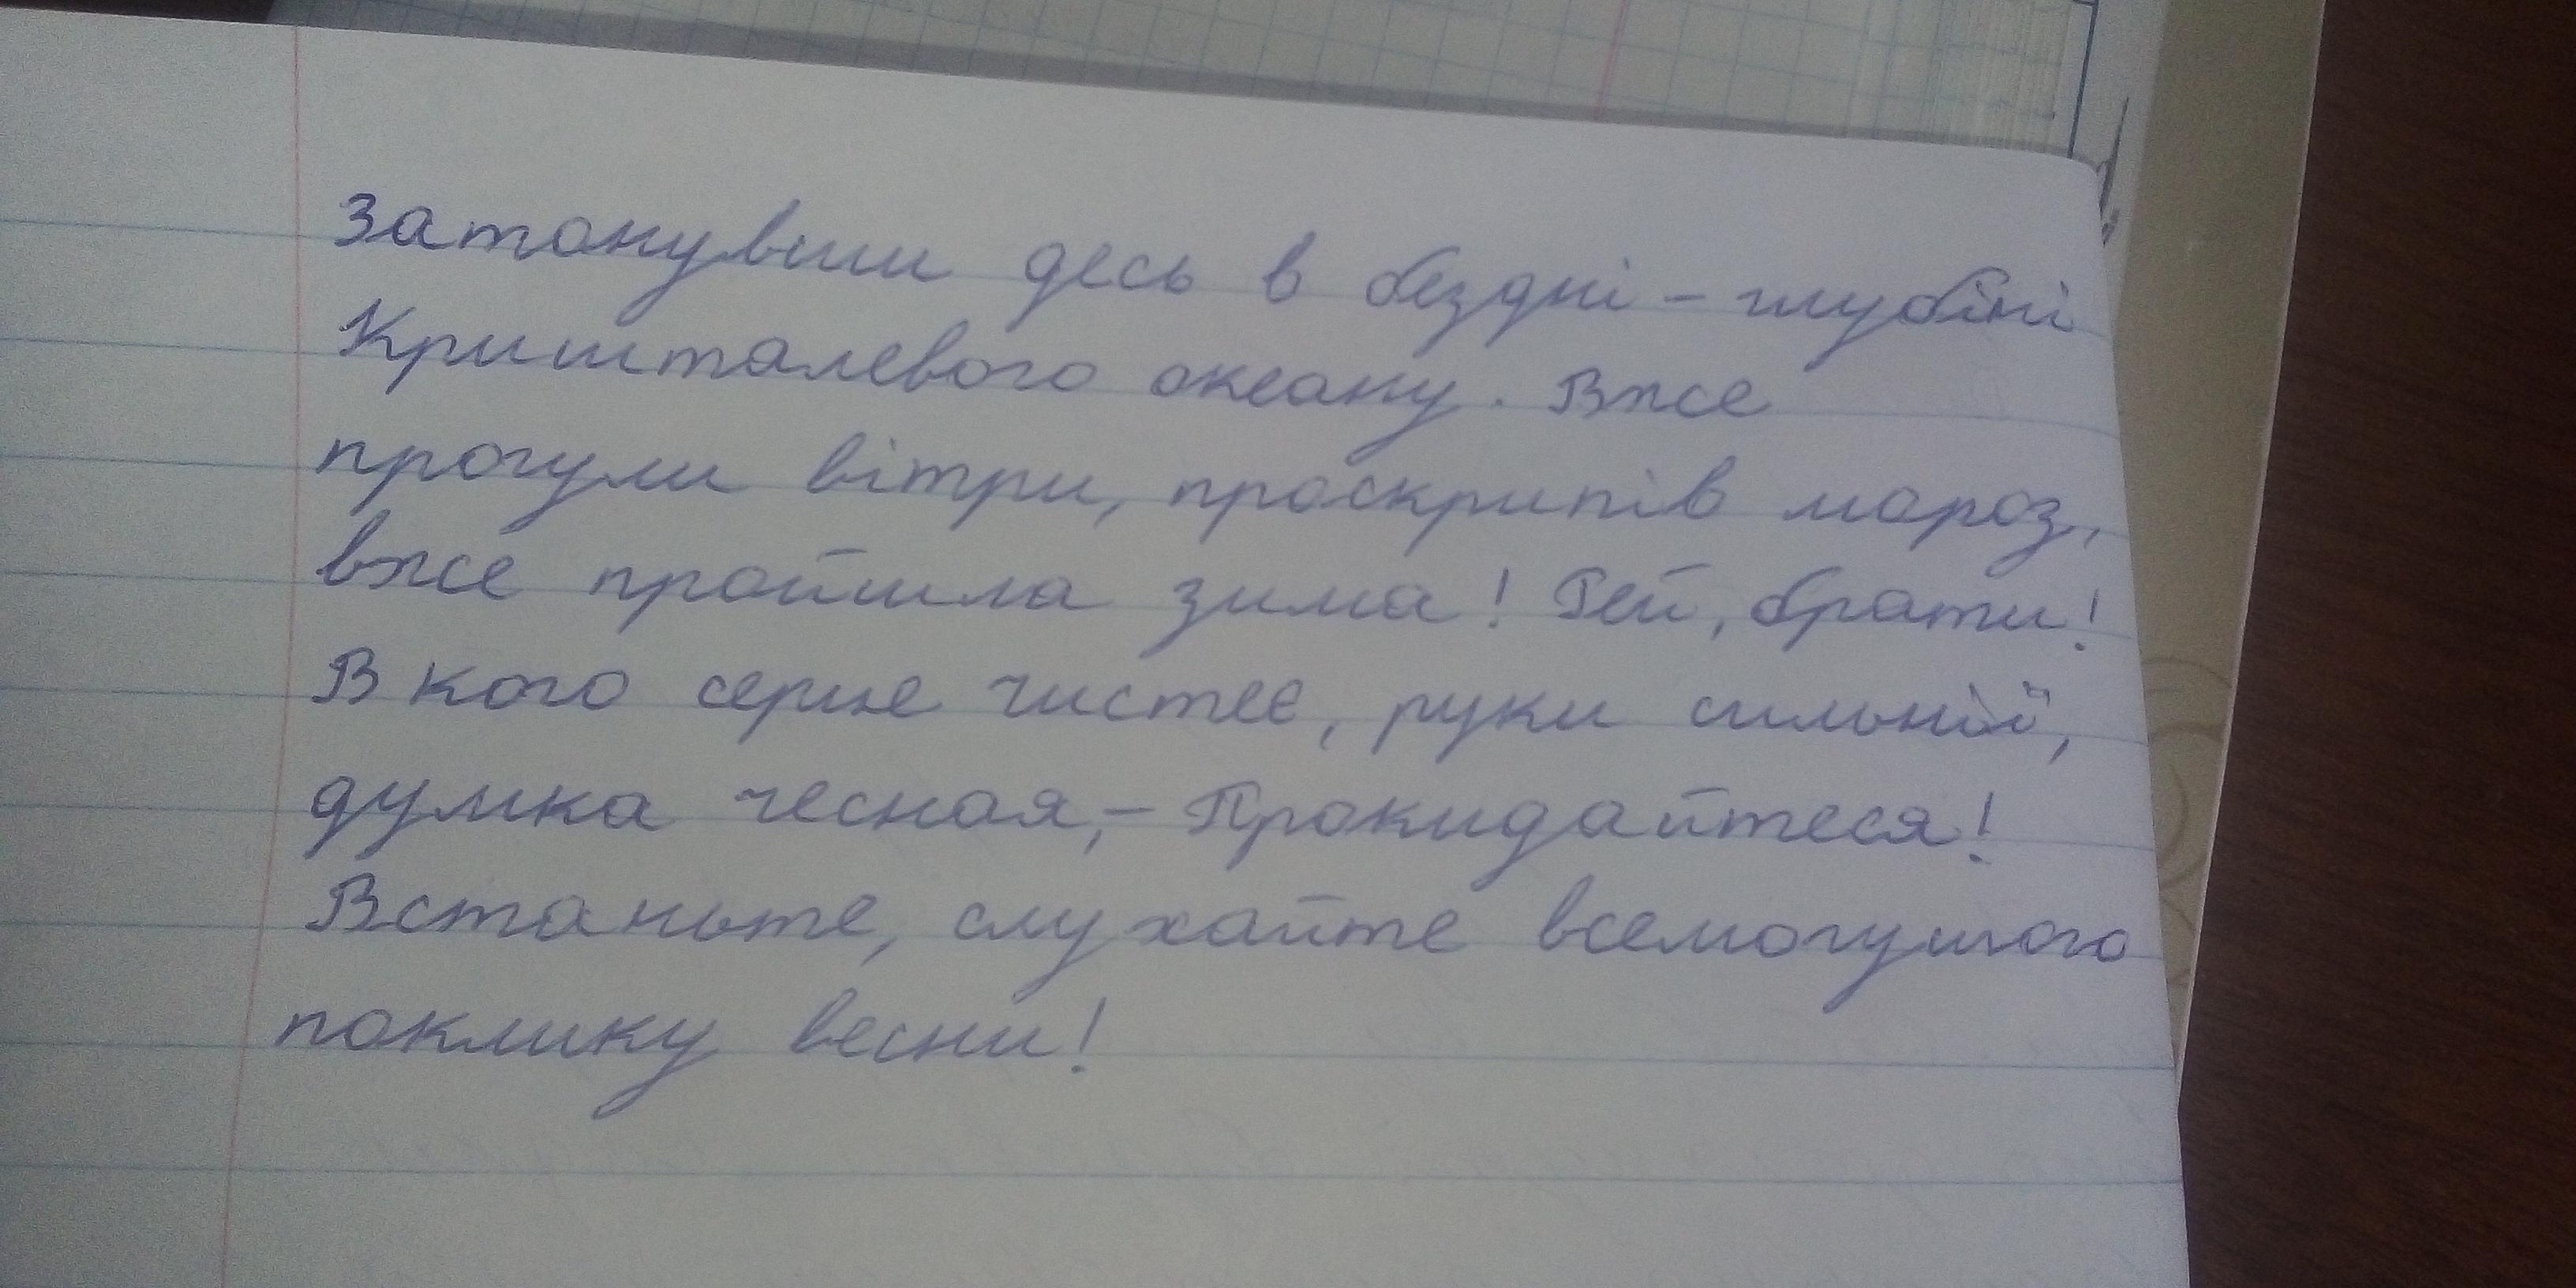 Затонувши десь в бездні - глубіні
Кришталевого океану. Вже
прогули вітри, проскрипів мороз,
вже пройшла зима! Гей, брати!
В кого серце чистеє, руки сильнії,
думка чесная,- Прокидайтеся!
Встаньте, слухайте всемогущого
поклику весни!